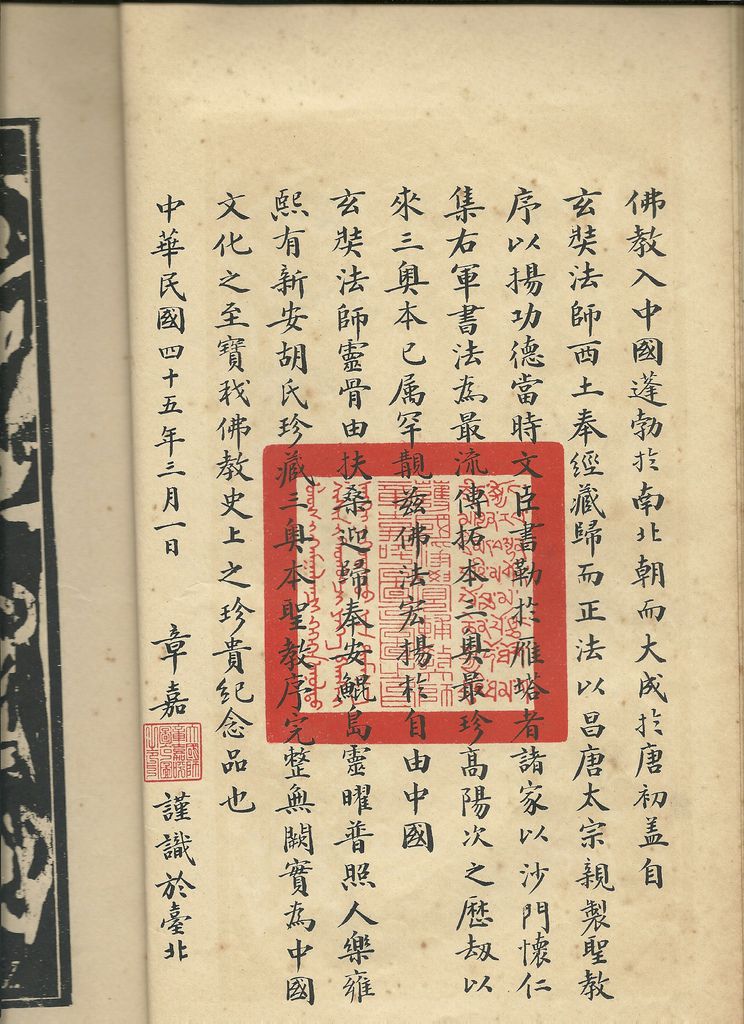 佛教入中國蓬勃於南北朝而大成於唐初盖自
玄奘法師西土奉經藏歸而正法以昌唐太宗親製聖教
序以揚功德當時文臣書勒於雁塔者諸家以沙門懷仁
集右軍書法為最流傳拓本三奥最珍高陽次之歷劫以
來三奥本已属罕覩茲佛法宏揚於自由中國
玄奘法師靈骨由扶桑迎歸奉安鯤島靈曜普照人樂雍
熙有新安胡氏珍藏三奥本聖教序完整無闕實為中國
文化之至寶我佛教史上之珍貴紀念品也
中華民國四十五年三月一日 章嘉 謹識於臺北